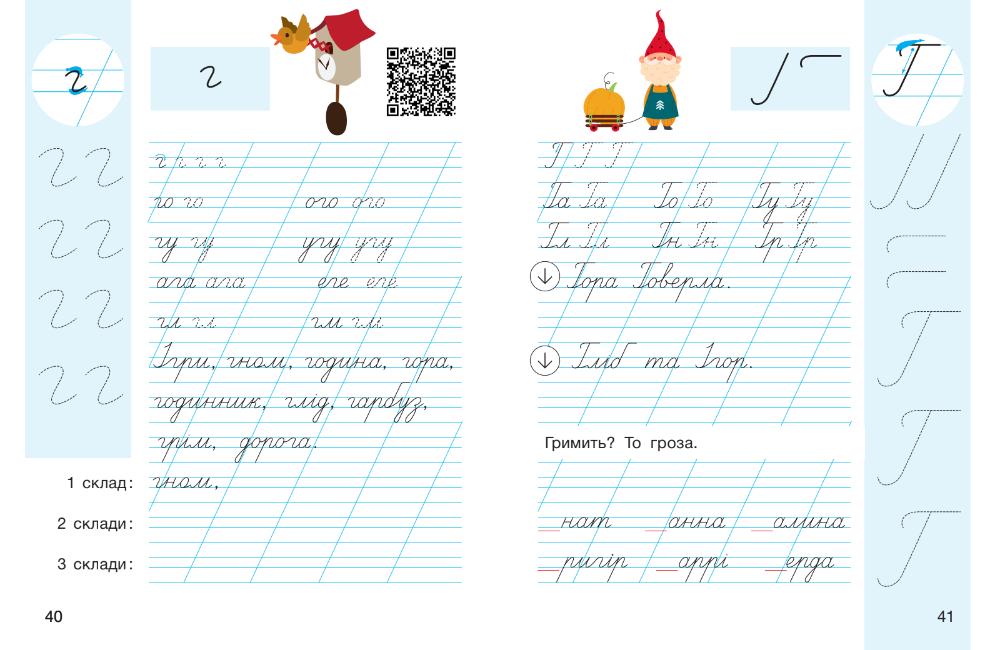 г
г г г г
го го ого ого
гу гу угу угу
ага ага еге еге
гл гл гм гм
Ігри, гном, година, гора,
годинник, глід, гарбуз,
грім, дорога.
1 склад: гном,
2 склади:
3 склади:
40
Г
Г Г Г
Га Га Го Го Гу Гу
Гл Гл Гн Гн Гр Гр
Гора Говерла.
Гліб та Ігор.
Гримить? То гроза.
_нат _анна _алина
_ригір _аррі _ерда
41
г г
г г
г г
г г
Г
Г
Г